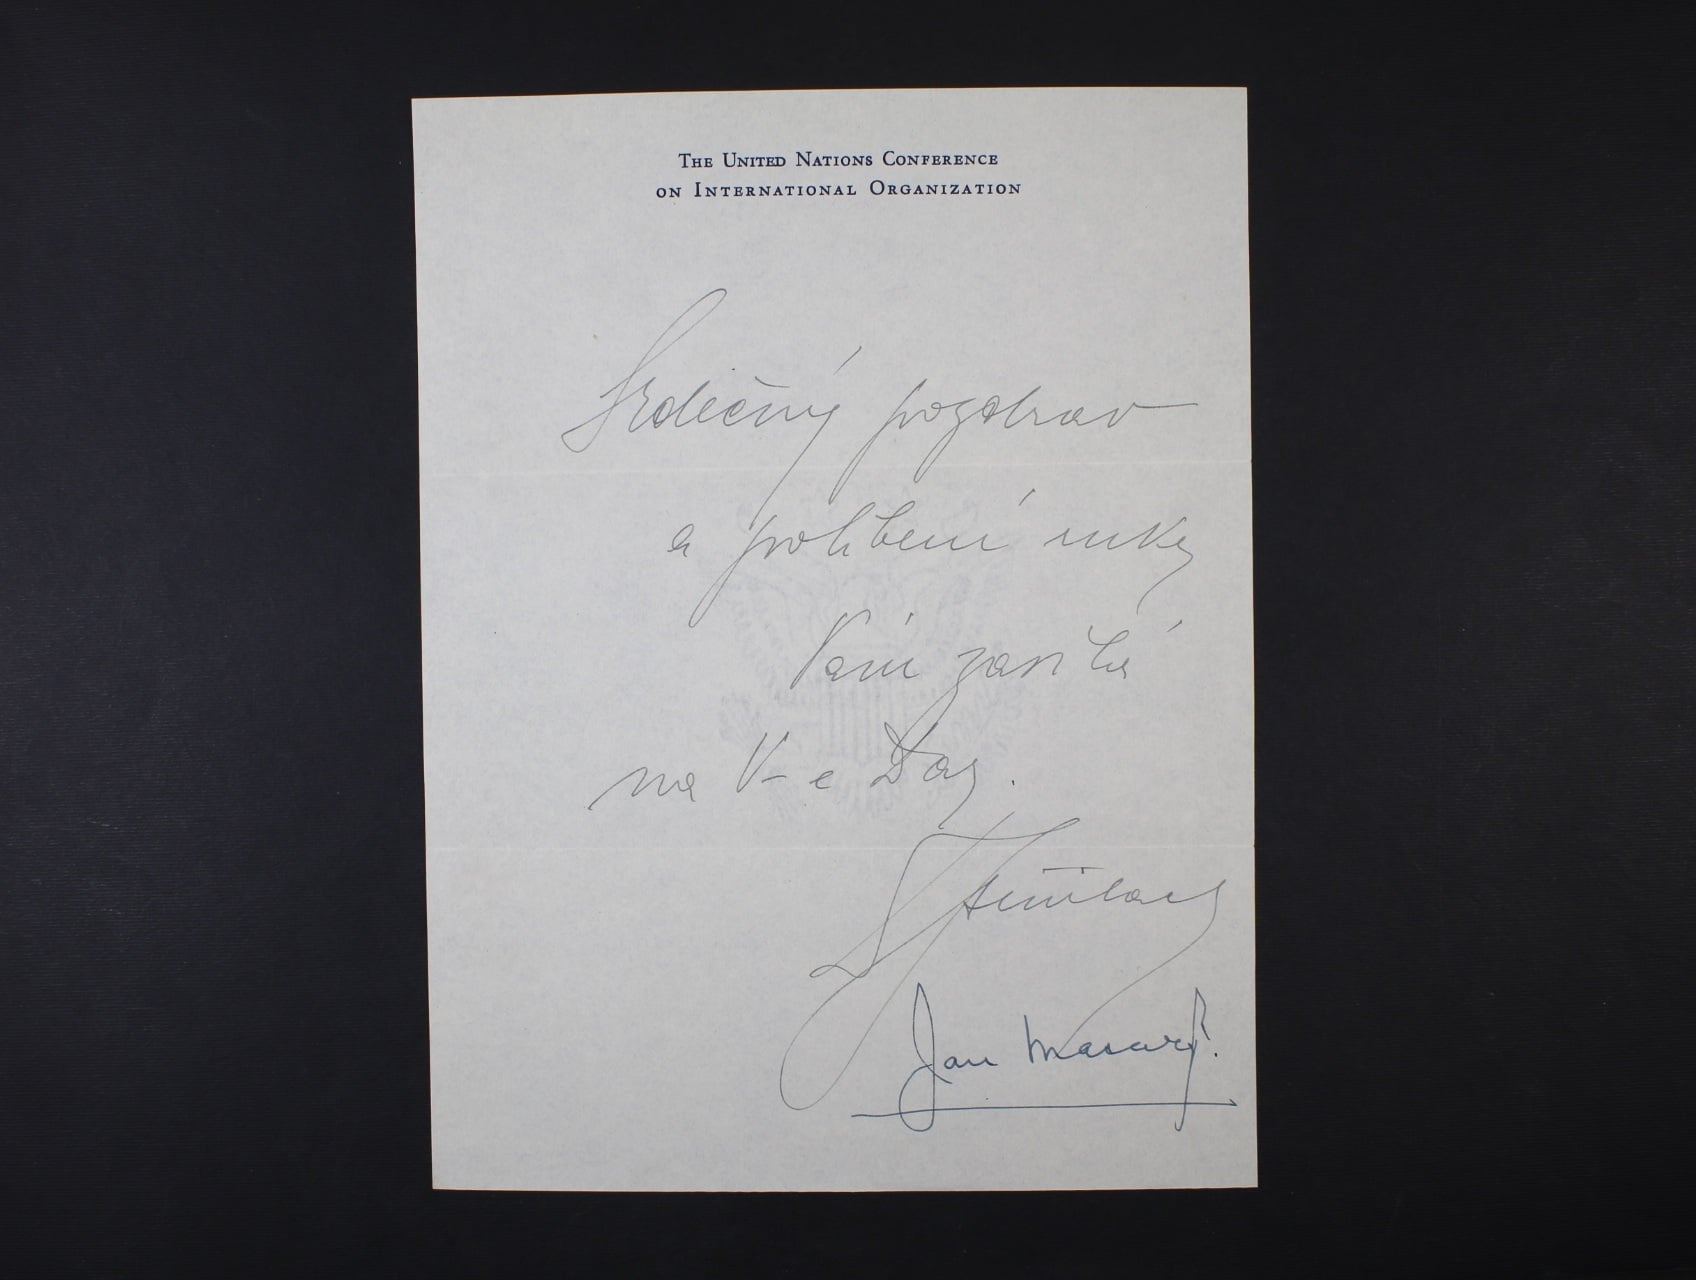 The United Nations Conference
on International Organization
Srdečný pozdrav
a políbení ruky
Vám zasílá
na V-e Day.
Jan Masaryk.